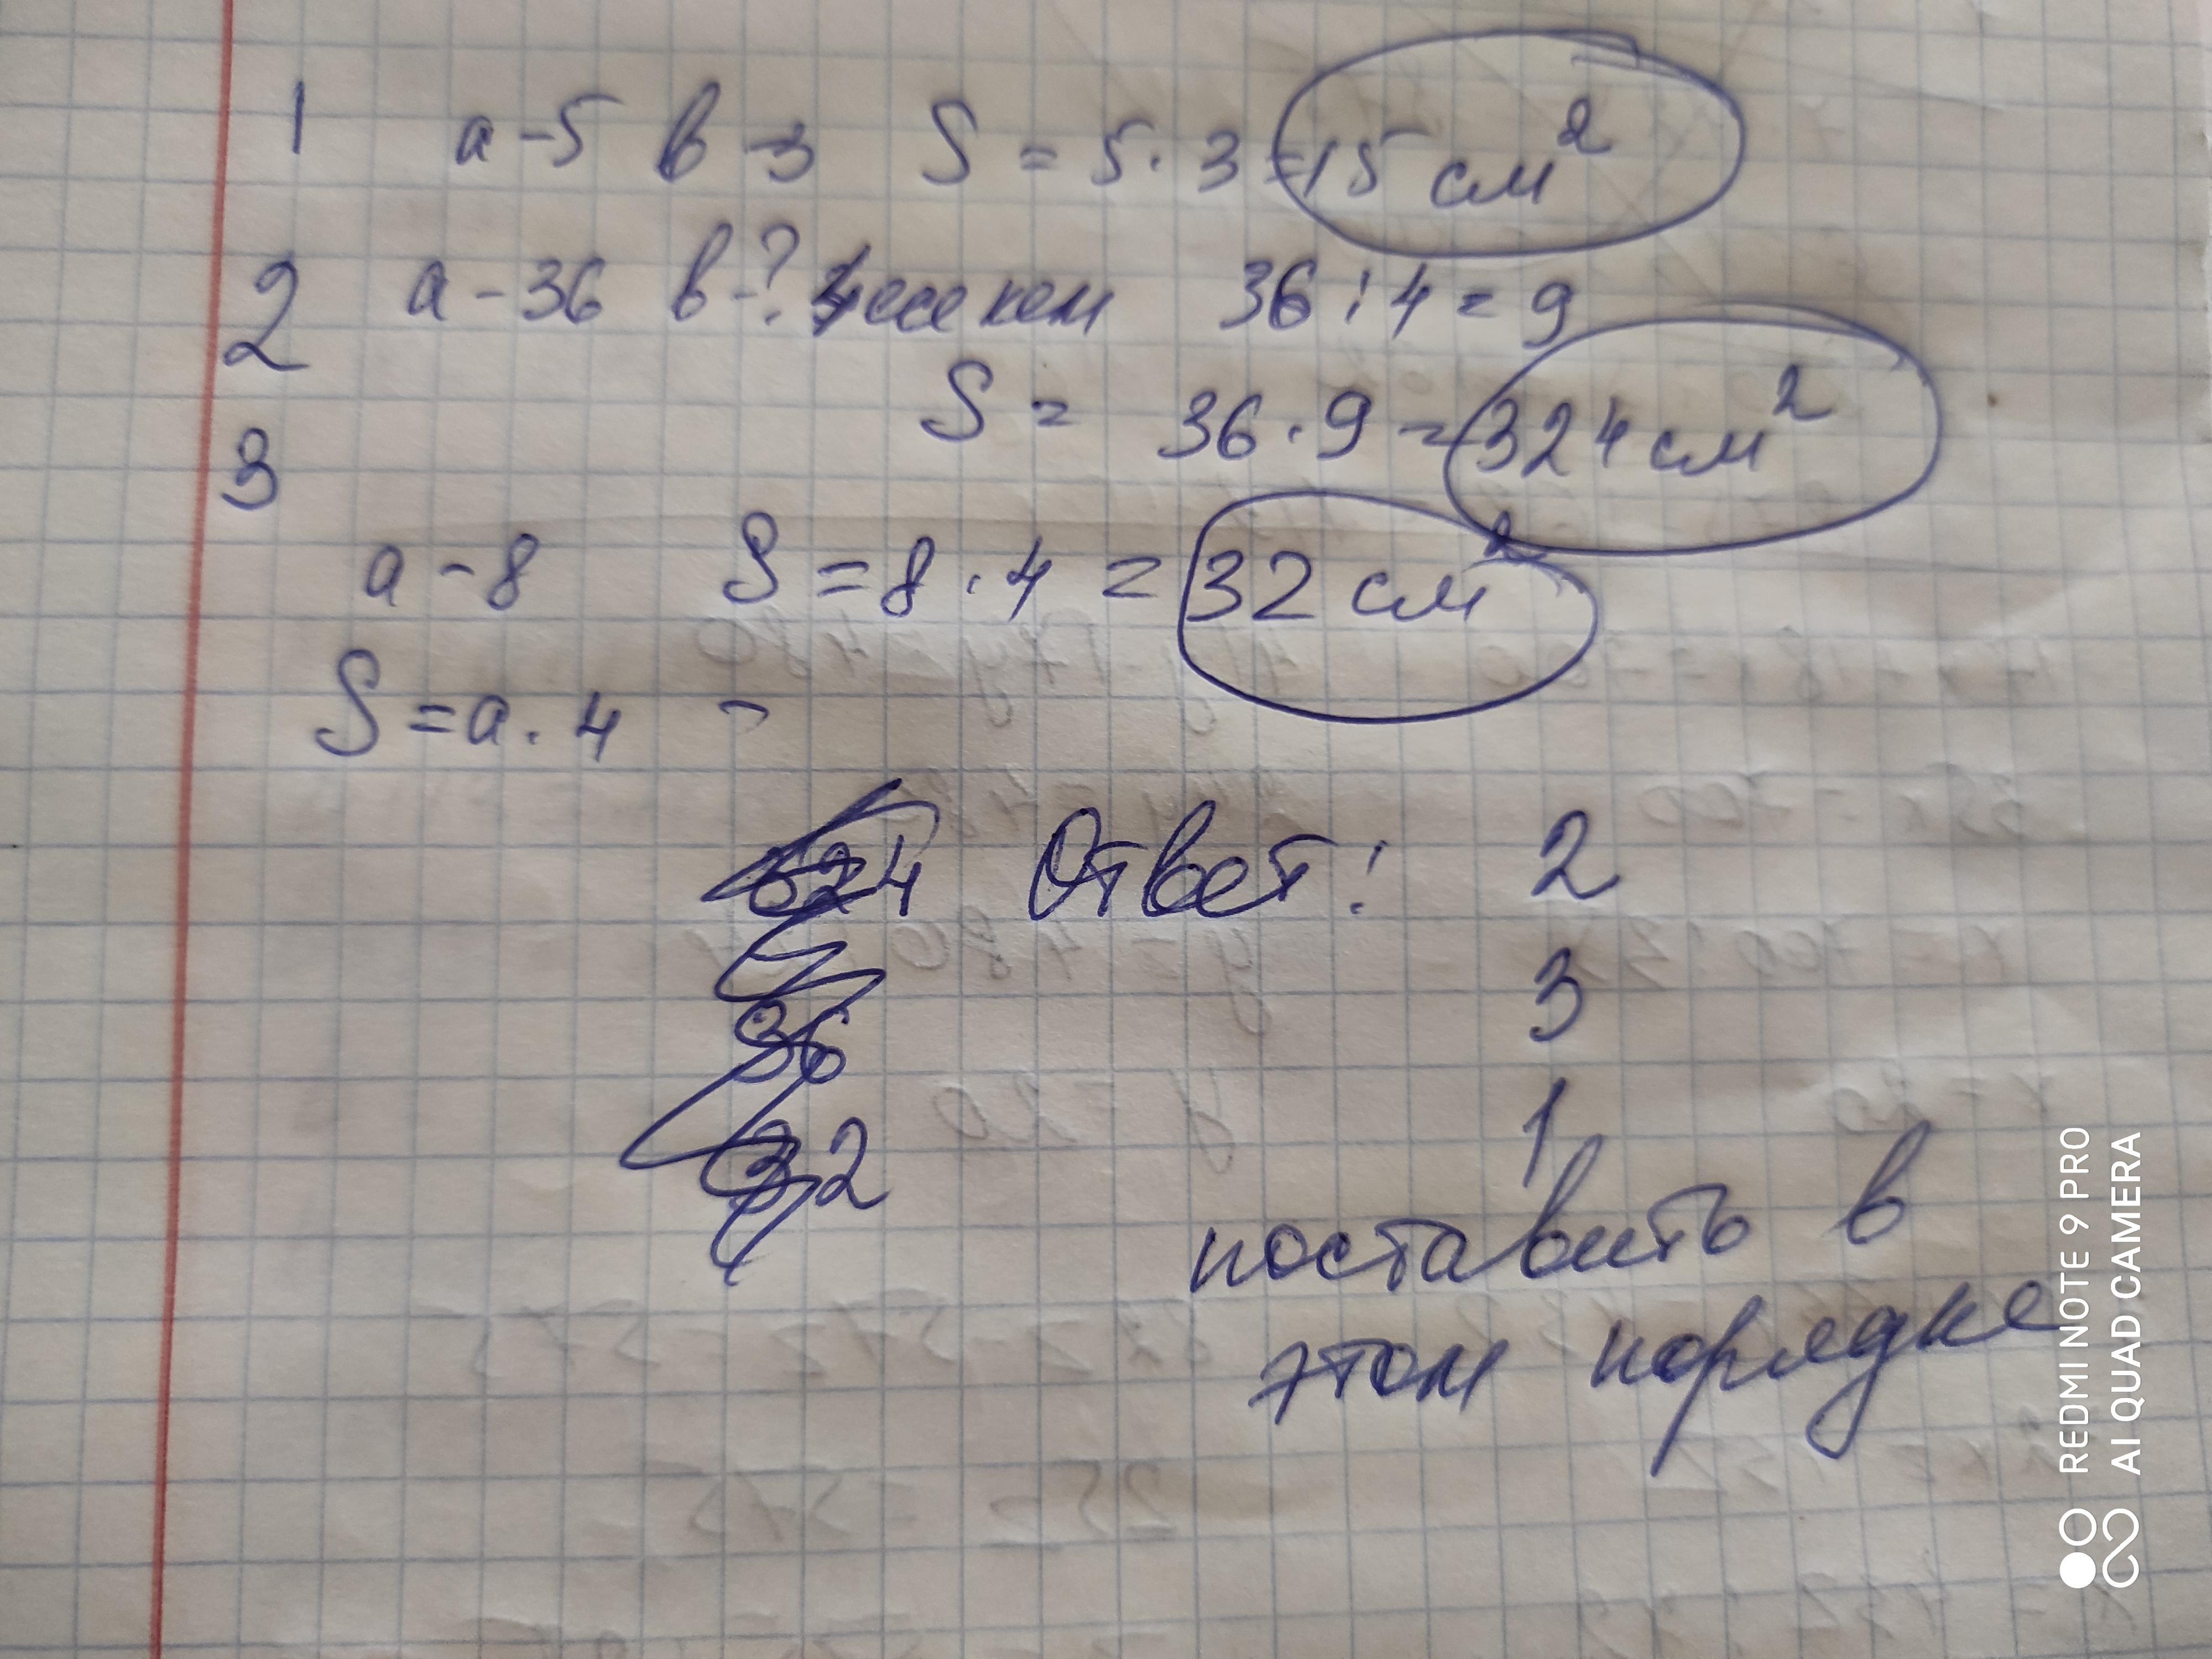 1 a-5 в-3 S=5·3=15 см²
2 a-36 в-? 4 есе кем 36:4=9
S= 36·9=324 см²
3
a-8 S=8·4=32 см²
S=a·4 -
Ответ: 2
3
36
32
1
поставить в
этом порядке
REDMI NOTE 9 PRO
AI QUAD CAMERA